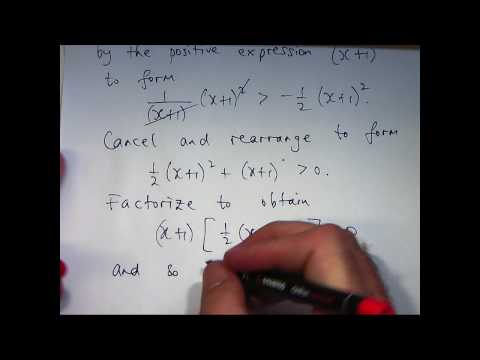 by the positive expression (x+1)
to form
1/(x+1) (x+1)² > -1/2 (x+1)².
Cancel and rearrange to form
1/2 (x+1)² + (x+1) > 0.
Factorize to obtain
(x+1) [ 1/2 (x
and so